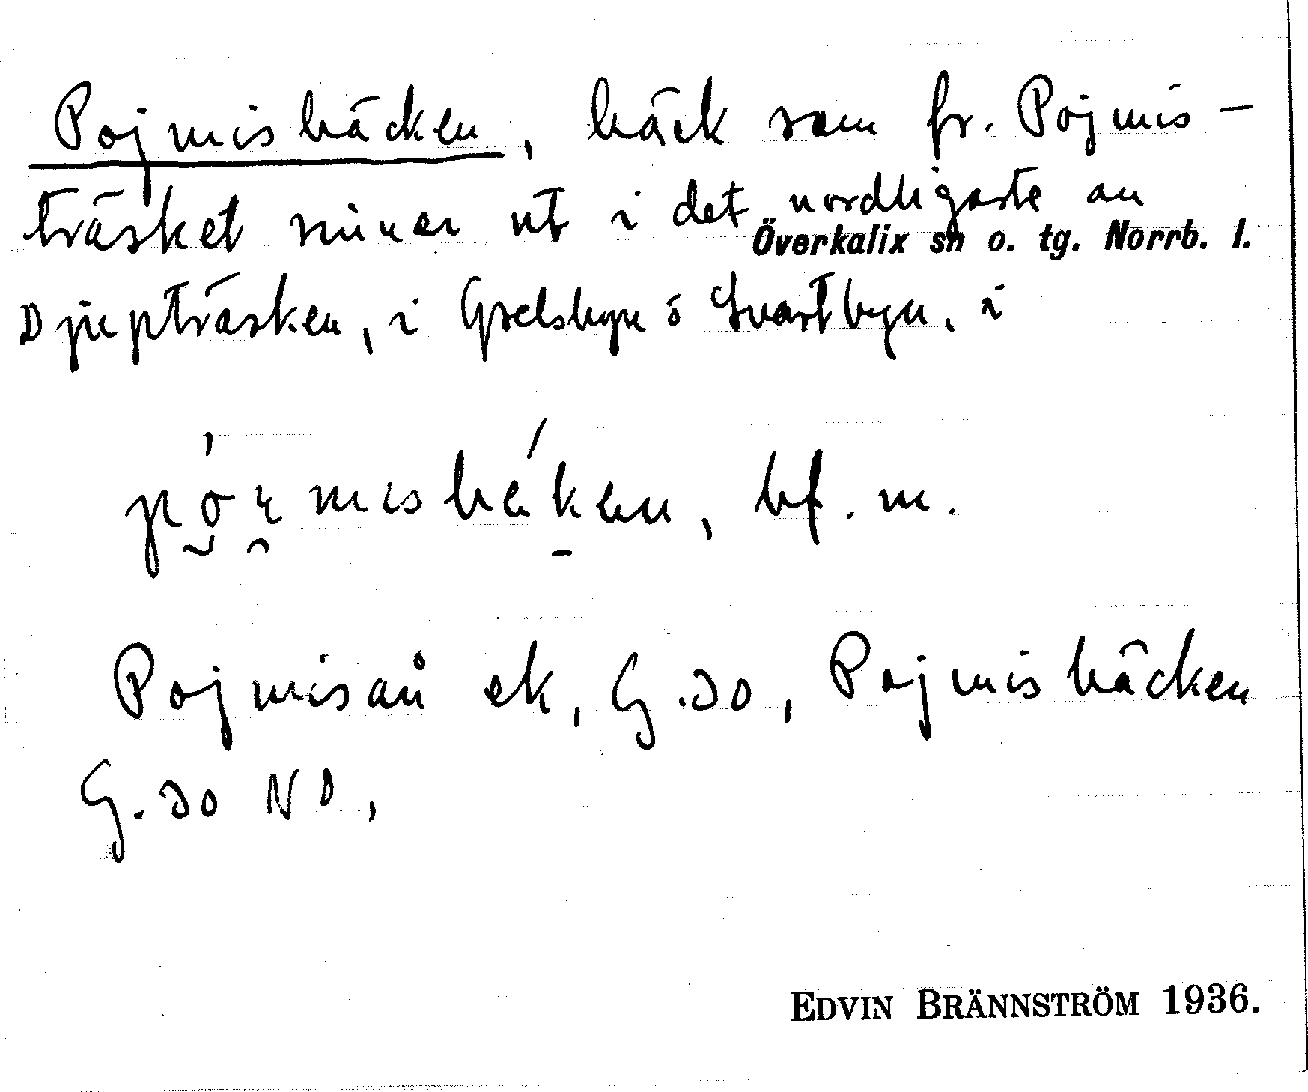 Pojmisbäcken, bäck som fr. Pojmis-
träsket rinner ut i det nordligaste av
Överkalix sn o. tg. Norrb. l.
Djupträsken, i Grelsbyn o Svartbyn, i
bf. m.
Pojmisån ek, G.do, Pojmisbäcken
G.do NO,
EDVIN BRÄNNSTRÖM 1936.